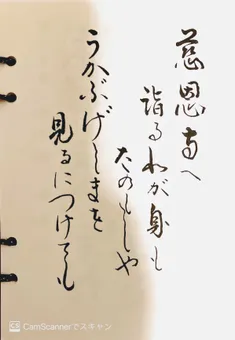 慈恩寺へ
詣るわが身も
たのもしや
うかぶげしまを
見るにつけても
CamScannerでスキャン